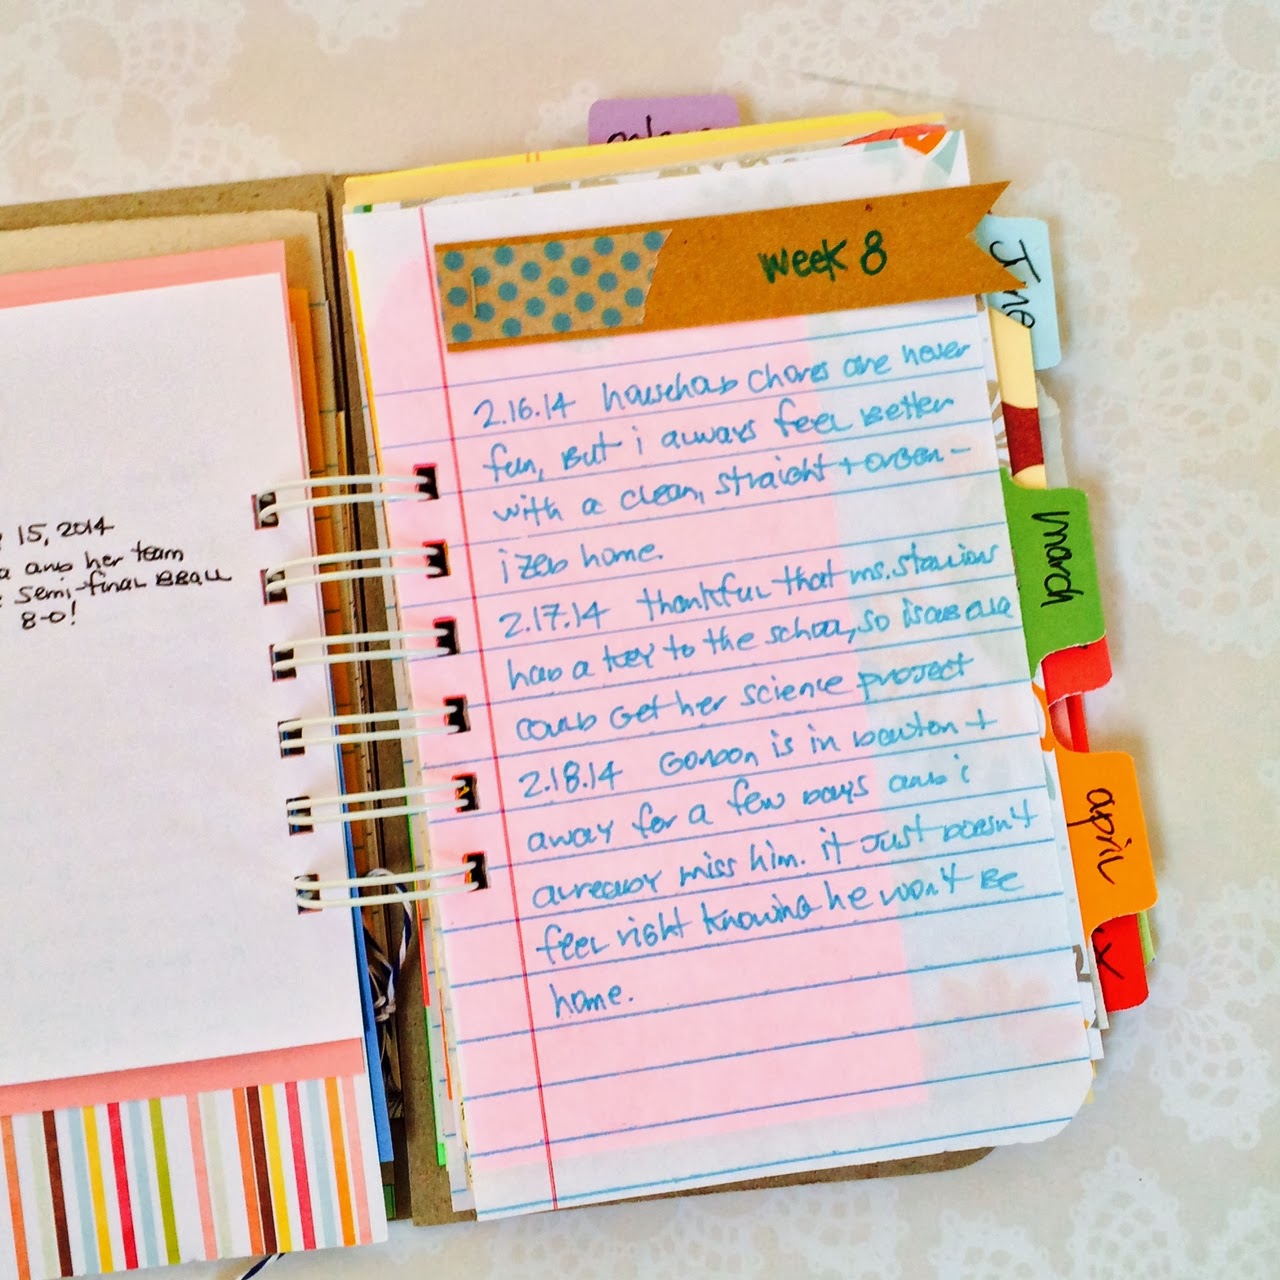 Week 8
June
march
april
15, 2014
a and her team
semi-final BBALL
8-0!
2.16.14 household chores are never
fun, But i always feel Better
with a clean, straight + organ-
ized home.
2.17.14 thankful that ms.
had a key to the school, so isabella
could get her science project
2.18.14 Gordon is in +
away for a few days and i
already miss him. it just doesn't
feel right knowing he won't Be
home.